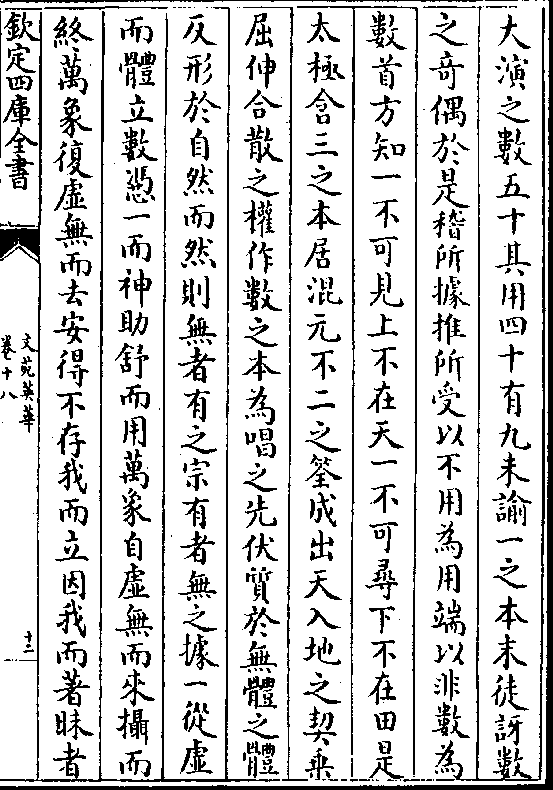 大演之數五十其用四十有九未諭一之本末徒訝數
之奇偶於是稽所據推所受以不用為用端以非數為
數首方知一不可見上不在天一不可尋下不在田是
太極含三之本居混元不二之筌成出天入地之契乗
屈伸合散之權作數之本為唱之先伏質於無體之體
反形於自然而然則無者有之宗有者無之據一從虛
而體立數憑一而神助舒而用萬象自虛無而來攝而
終萬象復虛無而去安得不存我而立因我而著昧者
欽定四庫全書
文苑英華
卷十八
十二